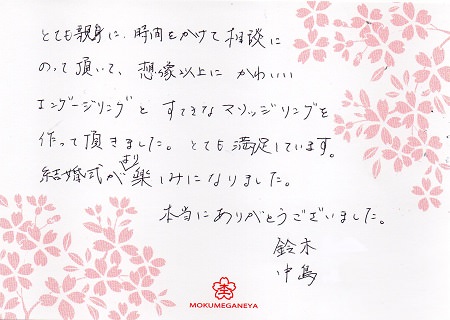 とても親身に、時間をかけて相談に
のって頂いて、想像以上に かわいい
エンゲージリングと すてきなマリッジリングを
作って頂きました。とても満足しています。
結婚式がより楽しみになりました。
本当にありがとうございました。
鈴木
中島
MOKUMEGANEYA